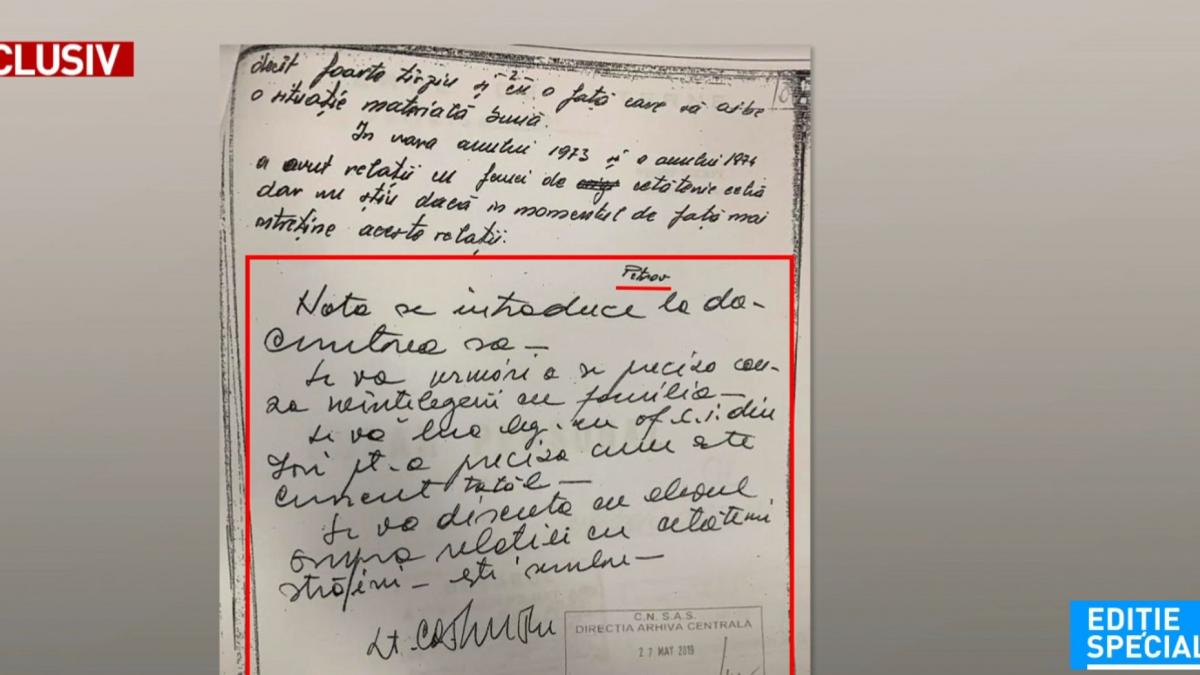 CLUSIV
- 2 -
decît foarte tîrziu și cu o fată care să aibe
o situație materială bună.
În vara anului 1973 și a anului 1974
a avut relații cu femei de cetățenie cehă
dar nu știu dacă în momentul de față mai
întreține aceste relații.
Petrov
Nota se introduce la do-
cuntrea sa —
Se va urmări a se preciza cau-
za neînțelegerii cu familia —
Se va lua leg. cu of. C.I. din
Iași pt. a preciza cum este
cunoscut tatăl —
Se va discuta cu elevul
asupra relatiei cu cetățeni
străini —
Lt.
C.N.S.A.S.
DIRECTIA ARHIVA CENTRALĂ
2 7 MAY 2019
EDITIE
SPECIAL